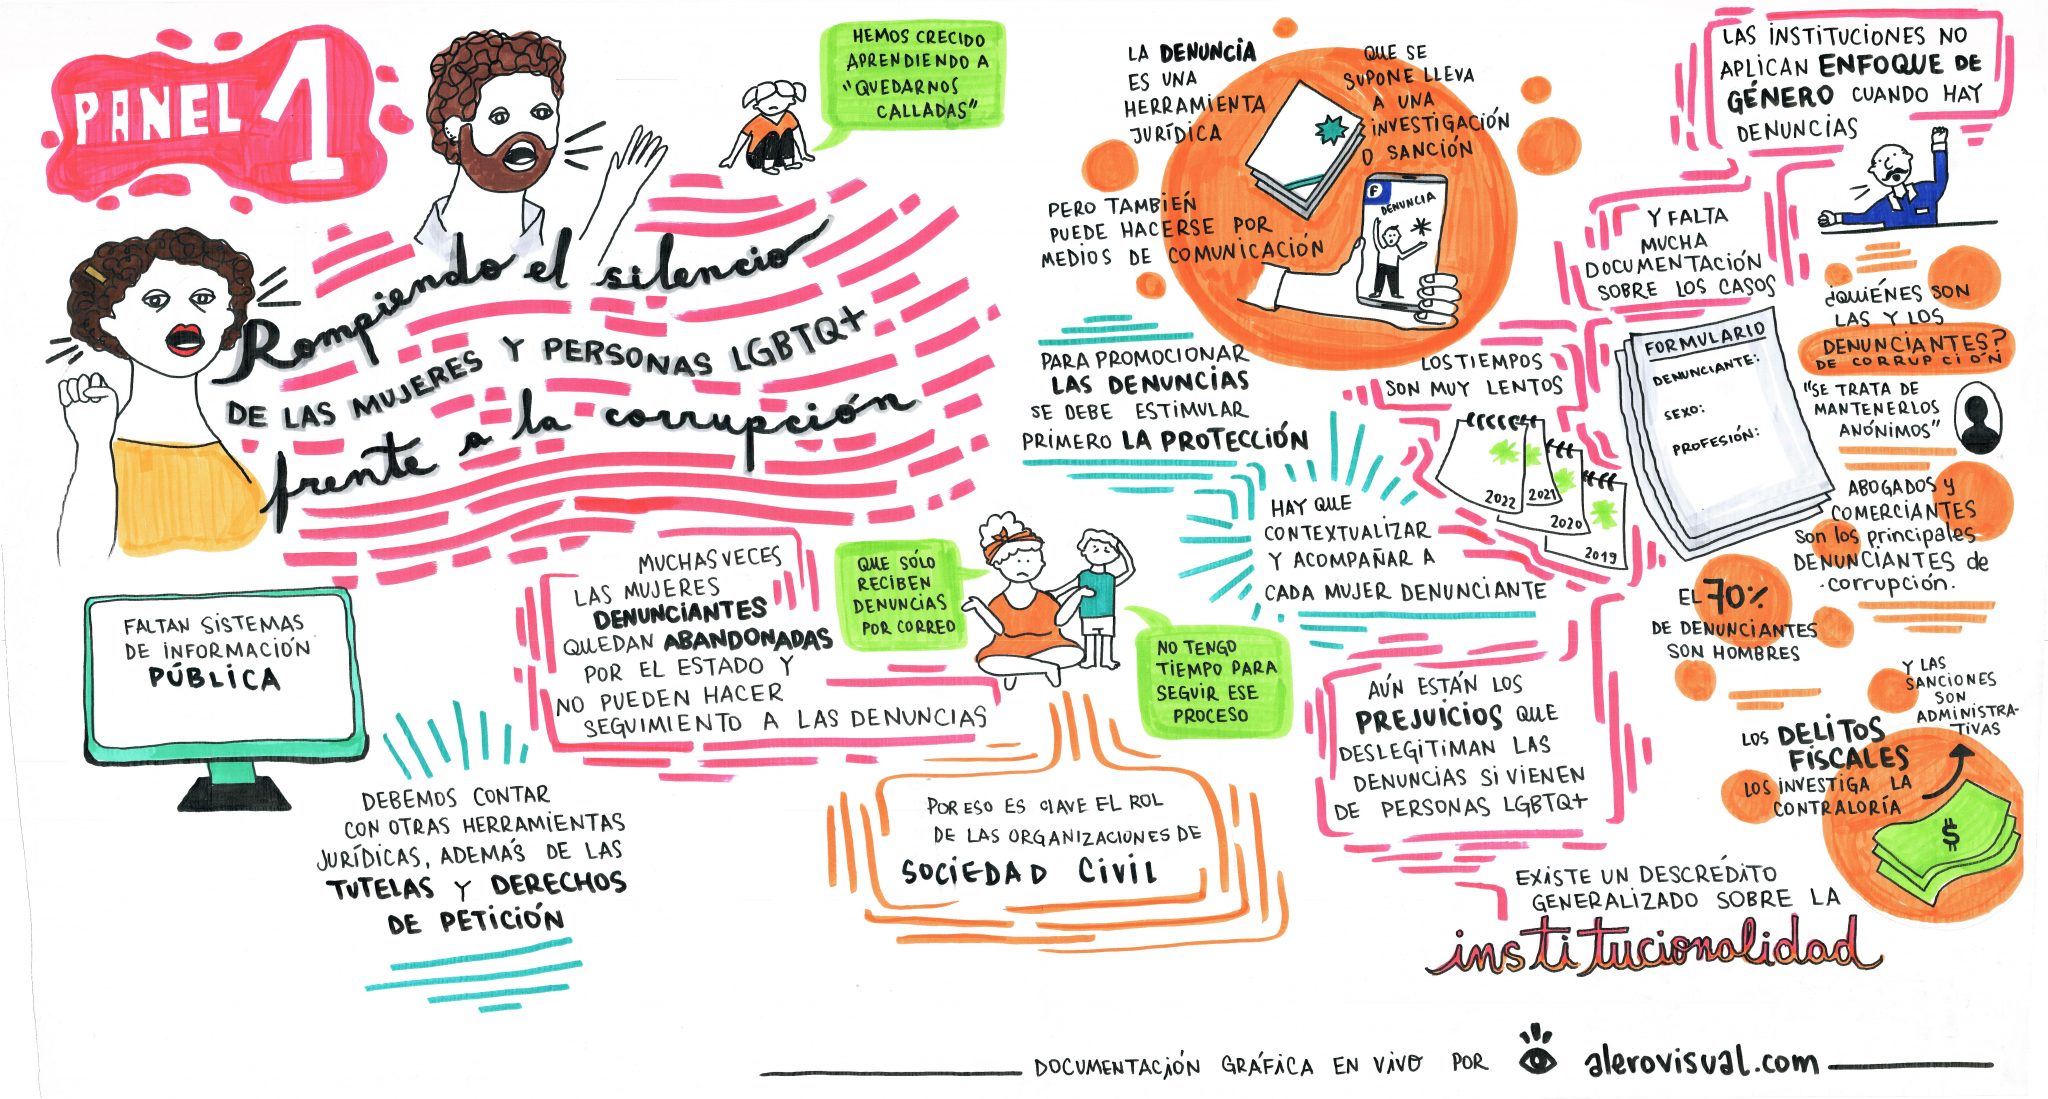 PANEL 1
Rompiendo el silencio
DE LAS MUJERES Y PERSONAS LGBTQ+
frente a la corrupción
HEMOS CRECIDO
APRENDIENDO A
"QUEDARNOS
CALLADAS"
FALTAN SISTEMAS
DE INFORMACIÓN
PÚBLICA
DEBEMOS CONTAR
CON OTRAS HERRAMIENTAS
JURÍDICAS, ADEMÁS DE LAS
TUTELAS Y DERECHOS
DE PETICIÓN
MUCHAS VECES
LAS MUJERES
DENUNCIANTES
QUEDAN ABANDONADAS
POR EL ESTADO Y
NO PUEDEN HACER
SEGUIMIENTO A LAS DENUNCIAS
QUE SÓLO
RECIBEN
DENUNCIAS
POR CORREO
NO TENGO
TIEMPO PARA
SEGUIR ESE
PROCESO
POR ESO ES CLAVE EL ROL
DE LAS ORGANIZACIONES DE
SOCIEDAD CIVIL
LA DENUNCIA
ES UNA
HERRAMIENTA
JURÍDICA
QUE SE
SUPONE LLEVA
A UNA
INVESTIGACIÓN
O SANCIÓN
PERO TAMBIÉN
PUEDE HACERSE POR
MEDIOS DE COMUNICACIÓN
F
DENUNCIA
PARA PROMOCIONAR
LAS DENUNCIAS
SE DEBE ESTIMULAR
PRIMERO LA PROTECCIÓN
HAY QUE
CONTEXTUALIZAR
Y ACOMPAÑAR A
CADA MUJER DENUNCIANTE
LOS TIEMPOS
SON MUY LENTOS
2022
2021
2020
2019
AÚN ESTÁN LOS
PREJUICIOS QUE
DESLEGITIMAN LAS
DENUNCIAS SI VIENEN
DE PERSONAS LGBTQ+
LAS INSTITUCIONES NO
APLICAN ENFOQUE DE
GÉNERO CUANDO HAY
DENUNCIAS
Y FALTA
MUCHA
DOCUMENTACIÓN
SOBRE LOS CASOS
FORMULARIO
DENUNCIANTE:
SEXO:
PROFESIÓN:
¿QUIÉNES SON
LAS Y LOS
DENUNCIANTES?
DE CORRUPCIÓN
"SE TRATA DE
MANTENERLOS
ANÓNIMOS"
ABOGADOS Y
COMERCIANTES
SON los principales
DENUNCIANTES de
corrupción.
EL 70%
DE DENUNCIANTES
SON HOMBRES
LOS DELITOS
FISCALES
LOS INVESTIGA LA
CONTRALORÍA
Y LAS
SANCIONES
SON
ADMINISTRA-
TIVAS
$
EXISTE UN DESCRÉDITO
GENERALIZADO SOBRE LA
institucionalidad
DOCUMENTACIÓN GRÁFICA EN VIVO POR alerovisual.com